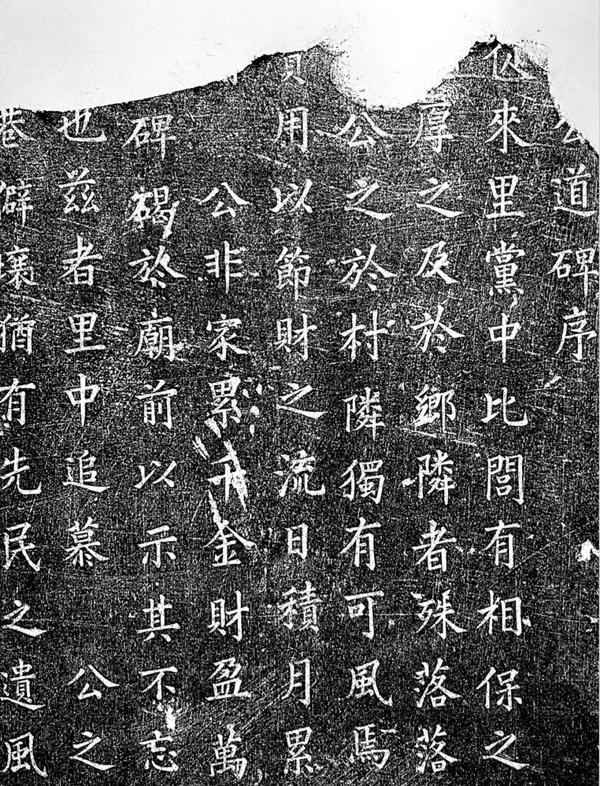 公道碑序
似來里黨中比閭有相保之
厚之及於鄉隣者殊落落
公之於村隣獨有可風焉
用以節財之流日積月累
公非家累千金財盈萬
碑碣於廟前以示其不忘
也茲者里中追慕 公之
巷僻壤猶有先民之遺風